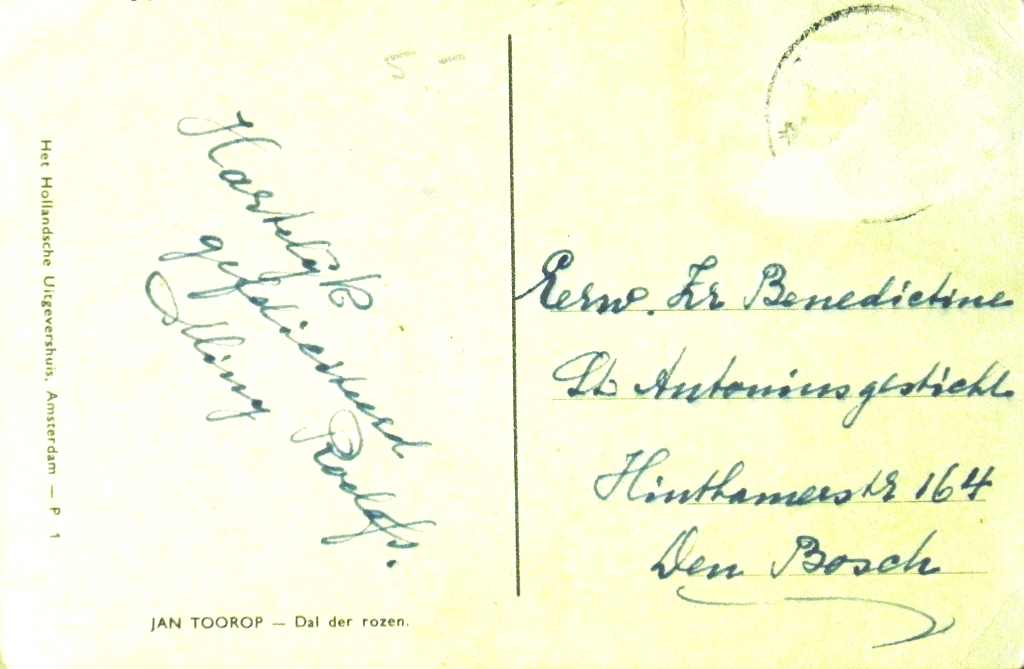 Het Hollandsche Uitgevershuis, Amsterdam — P 1
5 -
Hartelijk
gefeliciteerd
Rodolfs.
JAN TOOROP — Dal der rozen.
Eerw. Zr Benedictine
St Antoniusgesticht
Hinthamerstr 164
Den Bosch